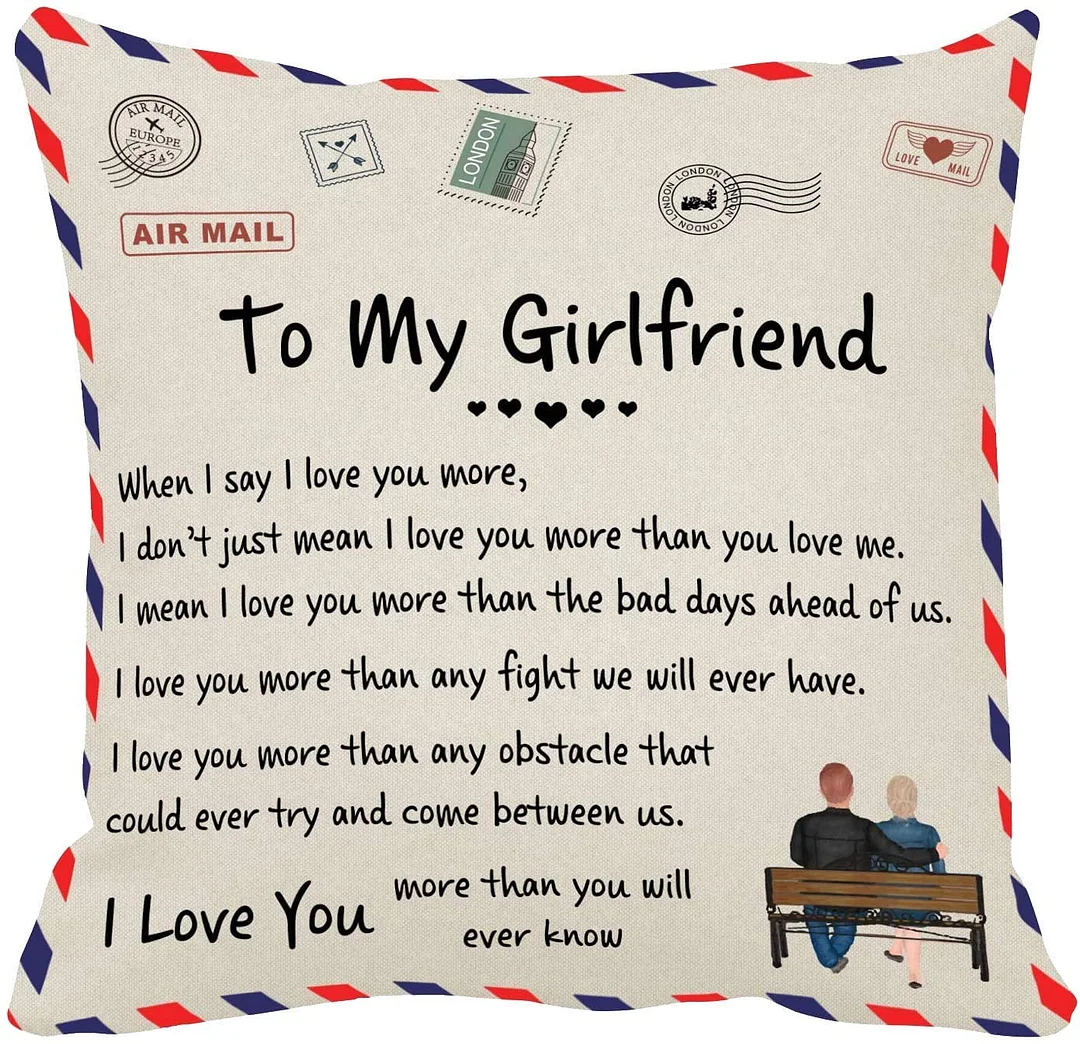 AIR MAIL
EUROPE
12345
LONDON
LONDON LONDON LONDON LONDON LONDON
LOVE MAIL
AIR MAIL
To My Girlfriend
When I say I love you more,
I don't just mean I love you more than you love me.
I mean I love you more than the bad days ahead of us.
I love you more than any fight we will ever have.
I love you more than any obstacle that
could ever try and come between us.
I Love You more than you will
ever know